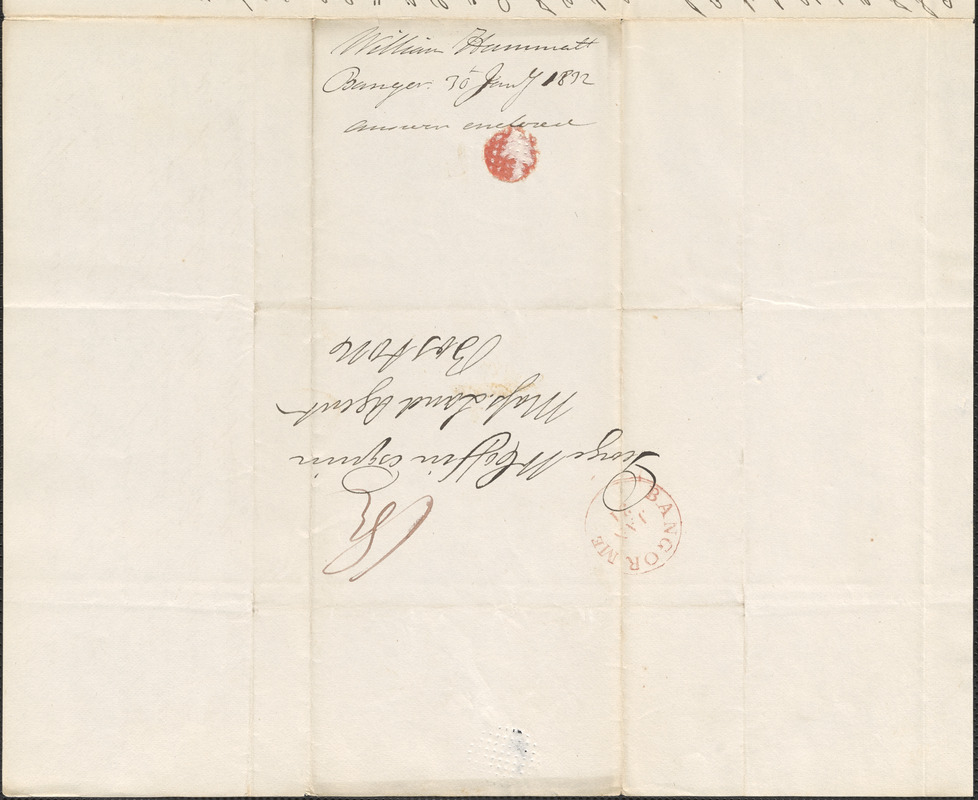 William Hammatt
Bangor. 30 Jany 1832
answer enclosed
George W Coffin Esquire
Mass Land Agent
Boston
BANGOR ME
JAN